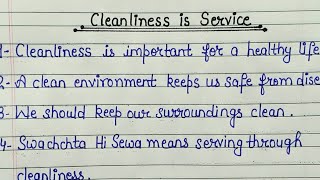 Cleanliness is Service
1- Cleanliness is important for a healthy life
2- A clean environment keeps us safe from
3- We should keep our surroundings clean.
4- Swachchta Hi Sewa means serving through
cleanliness.